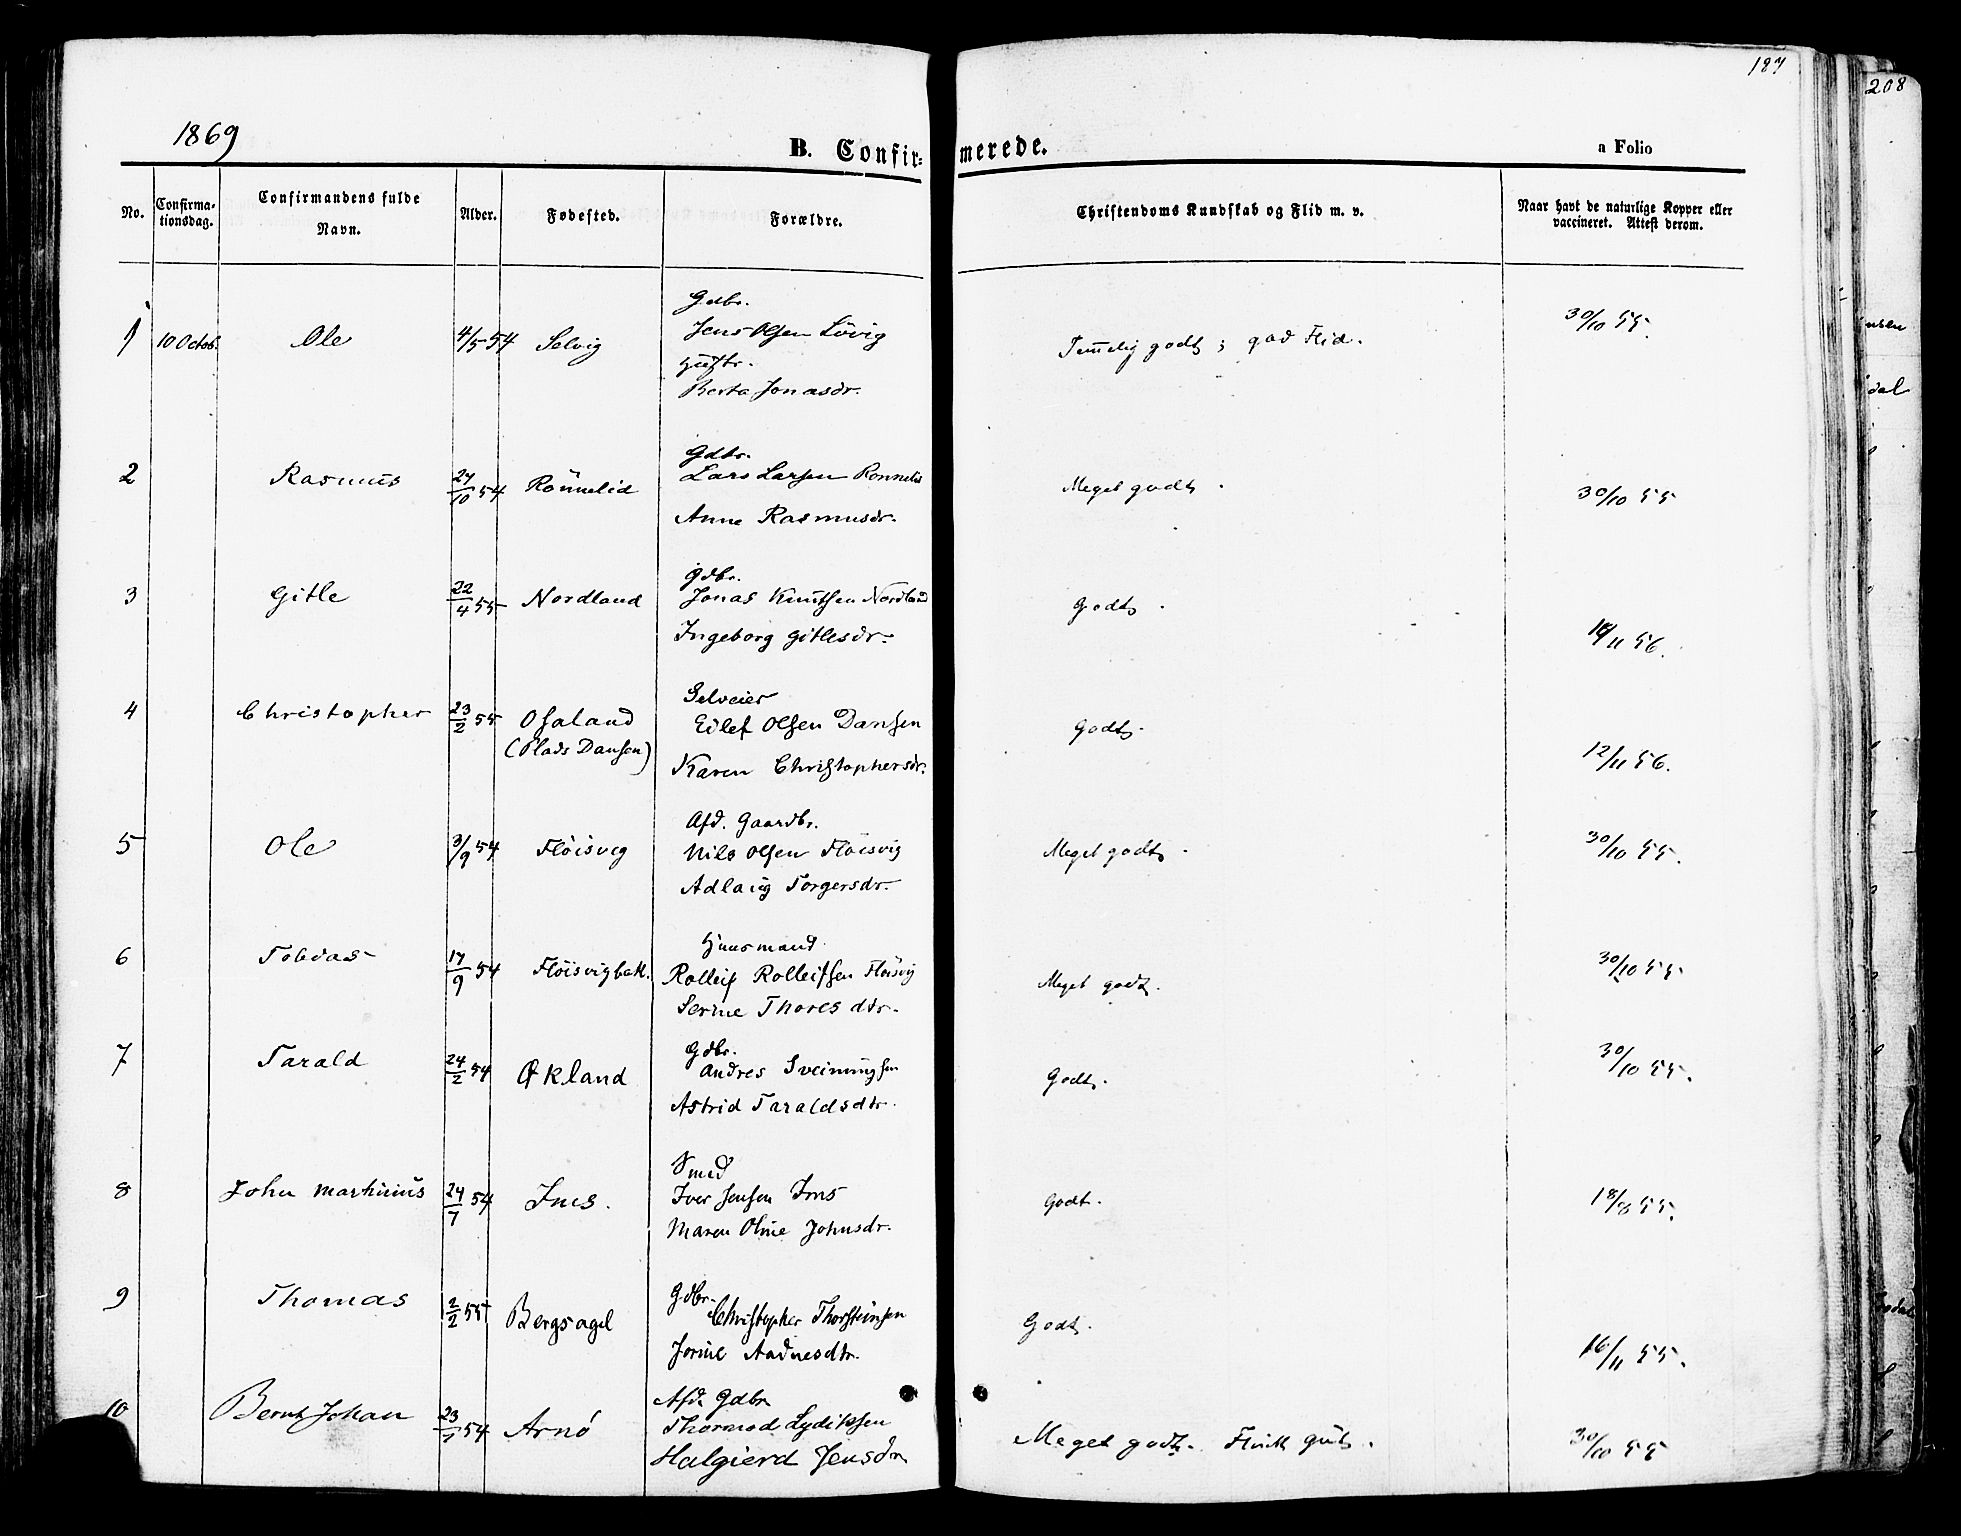 187
208
1869
B. Confir- merede.
a Folio
No. Confirma-tionsdag. Confirmandens fulde Navn. Alder. Fødested. Forældre. Christendoms Kundskab og Flid m. v. Naar havt de naturlige Kopper eller vaccineret. Attest derom.
Gdbr.
1 10 Octob. Ole 4/5 54 Selvig Jens Olsen Lövig Temelig godt; god Flid. 30/10 55.
Hustr.
Berta Jonasdr.
Gdbr.
2 Rasmus 10 54 Rönnelid Lars Larsen Ronnelid Meget godt. 30/10 55
Anne Rasmusdr.
Gdbr.
3 Gitle 22/4 55 Nordland Jonas Knutsen Nordland Godt. 11 56.
Ingeborg Gitlesdr.
Selveier
4 Christopher 23/2 55 Osaland Edlef Olsen Dansen Godt. 12/11 56.
(Plads Dansen) Karen Christophersdr.
Afd. Gaardbr.
5 Ole 3/9 54 Flöisvig Nils Olsen Flöisvig Meget godt. 30/10 55.
Adlaug Torgersdr.
Huusmand
6 Tobias 17/9 54 Flöisvigbak. Rolleif Rolleifsen Flöisvig Meget godt. 30/10 55
Serine Thores dtr.
Gdbr.
7 Tarald 24/2 54 Økland Andres Sveinungsen Godt. 30/10 55.
Astrid Taraldsdtr.
Smed
8 John Martinius 24/7 54 Ims. Iver Jensen Ims Godt. 18/8 55.
Maren Oline Johnsdr.
Gdbr.
9 Thomas 2/2 55 Bergsagel Christopher Thorsteinsen Godt. 16/11 55.
Jorine Aadnesdtr.
Afd. Gdbr.
10 Bernt Johan 23 54 Arnö Thormod Lydiksen Meget godt. Flink gut. 30/10 55
Halgierd Jensdr.